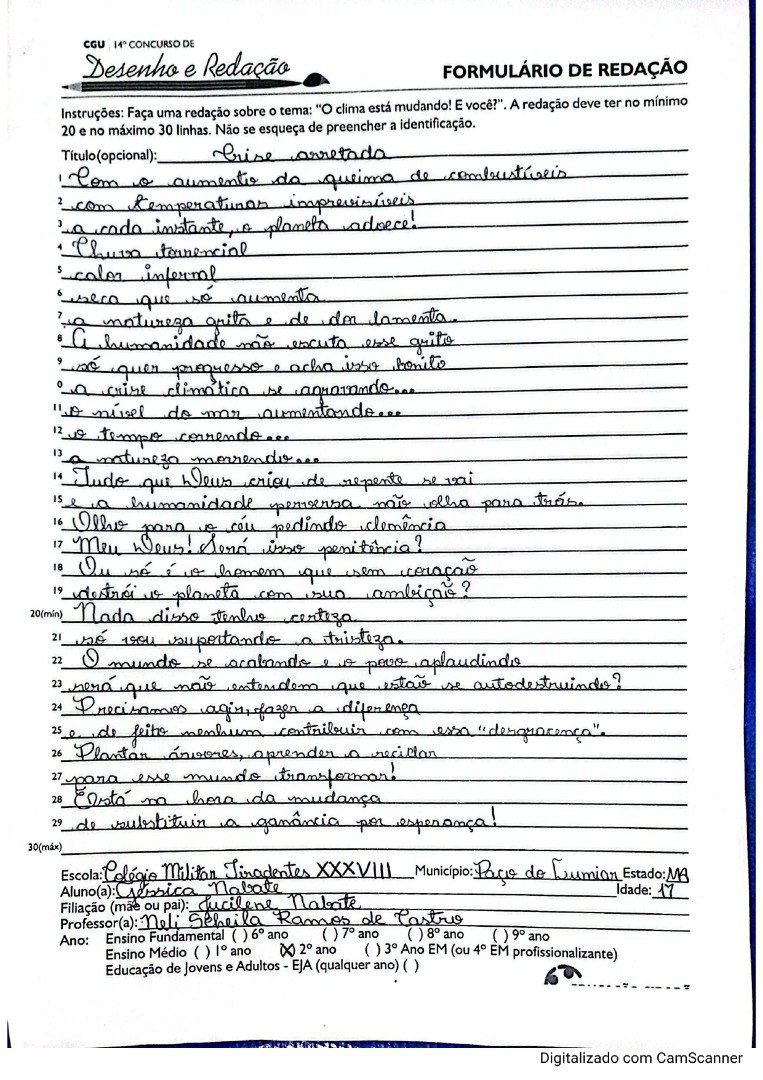 CGU 14º CONCURSO DE
Desenho e Redação
FORMULÁRIO DE REDAÇÃO
Instruções: Faça uma redação sobre o tema: "O clima está mudando! E você?". A redação deve ter no mínimo
20 e no máximo 30 linhas. Não se esqueça de preencher a identificação.
Título(opcional): Crise arretada
1 Com o aumento da queima de combustíveis
2 com temperaturas imprevisíveis
3 a cada instante, o planeta adoece!
4 Chuva torrencial
5 calor infernal
6 seca que só aumenta
7 a natureza grita e de dor lamenta.
8 A humanidade não escuta esse grito
9 só quer progresso e acha isso bonito
0 a crise climática se agravando...
11 o nível do mar aumentando...
12 o tempo correndo...
13 a natureza morrendo...
14 Tudo que Deus criou de repente se vai
15 e a humanidade perversa não olha para trás.
16 Olho para o céu pedindo clemência
17 Meu Deus! Será isso penitência?
18 Ou só é o homem que sem coração
19 destrói o planeta com sua ambição?
20(mín) Nada disso tenho certeza
21 só vou suportando a tristeza.
22 O mundo se acabando e o povo aplaudindo
23 será que não entendem que estão se autodestruindo?
24 Precisamos agir, fazer a diferença
25 e de jeito nenhum contribuir com essa "desgracença".
26 Plantar árvores, aprender a reciclar
27 para esse mundo transformar!
28 Está na hora da mudança
29 de substituir a ganância por esperança!
30(máx)
Escola: Colégio Militar Tiradentes XXXVIII Município: Paço do Lumiar Estado: MA
Aluno(a): Géssica Nabate Idade: 17
Filiação (mãe ou pai): Jucilene Nabate
Professor(a): Neli Scheila Ramos de Castro
Ano: Ensino Fundamental ( ) 6º ano ( ) 7º ano ( ) 8º ano ( ) 9º ano
Ensino Médio ( ) 1º ano (X) 2º ano ( ) 3º Ano EM (ou 4º EM profissionalizante)
Educação de Jovens e Adultos - EJA (qualquer ano) ( )
Digitalizado com CamScanner